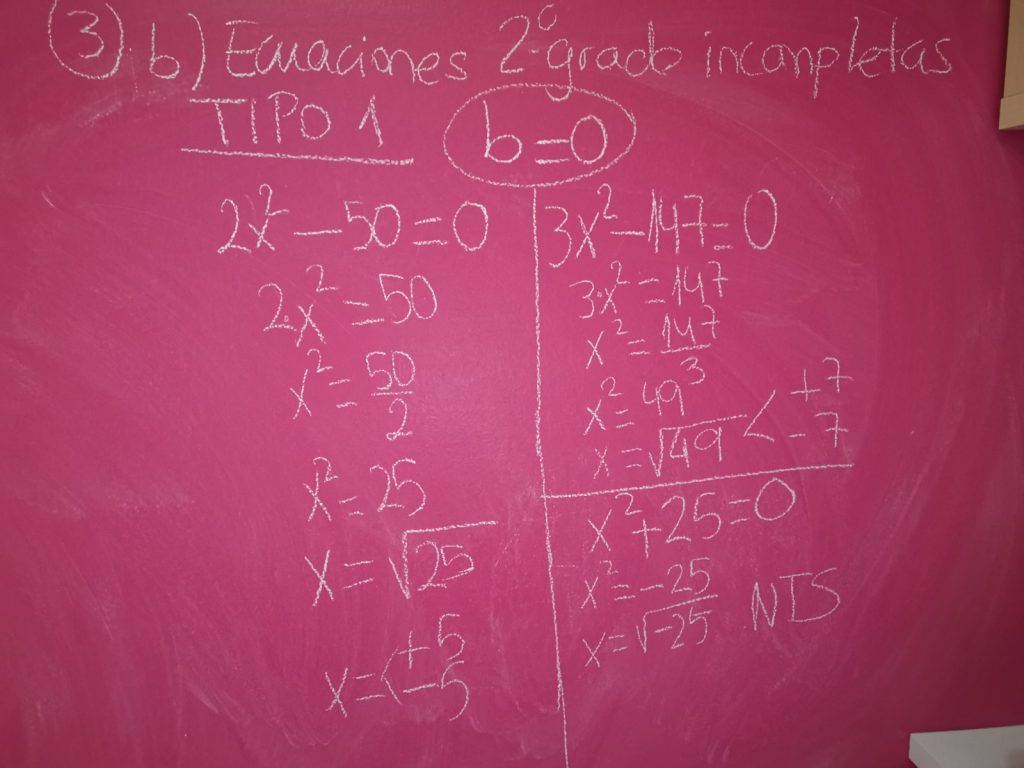 ③ b) Ecuaciones 2º grado incompletas
TIPO 1 b=0
2x² - 50 = 0
2·x² = 50
x² = 50/2
x² = 25
x = √25
x = < +5 -5
3x² - 147 = 0
3·x² = 147
x² = 147/3
x² = 49
x = √49 < +7 -7
x² + 25 = 0
x² = -25
x = √-25 NTS